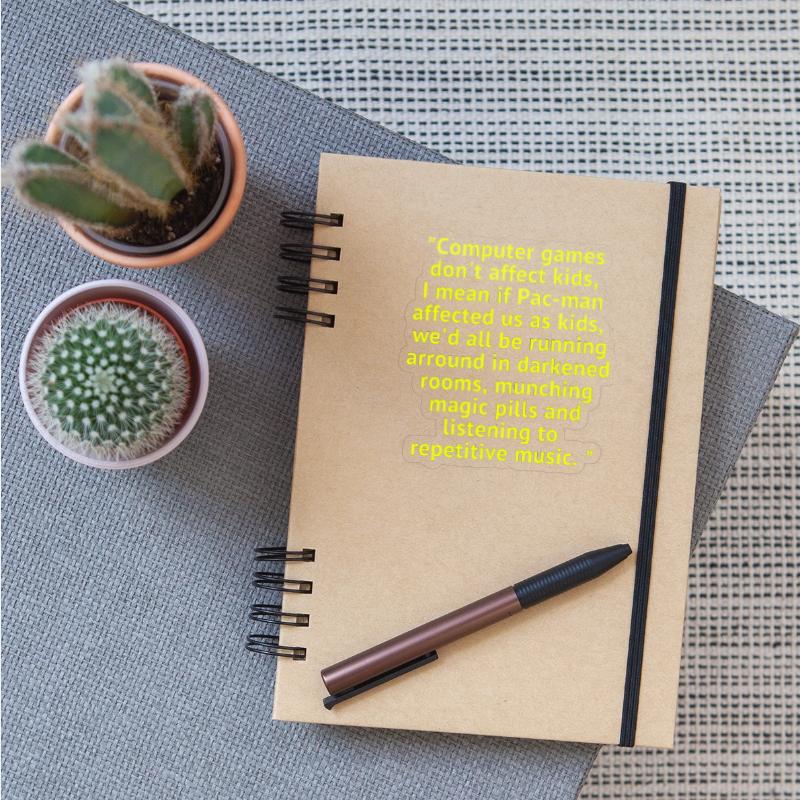 "Computer games
don't affect kids,
I mean if Pac-man
affected us as kids,
we'd all be running
arround in darkened
rooms, munching
magic pills and
listening to
repetitive music. "